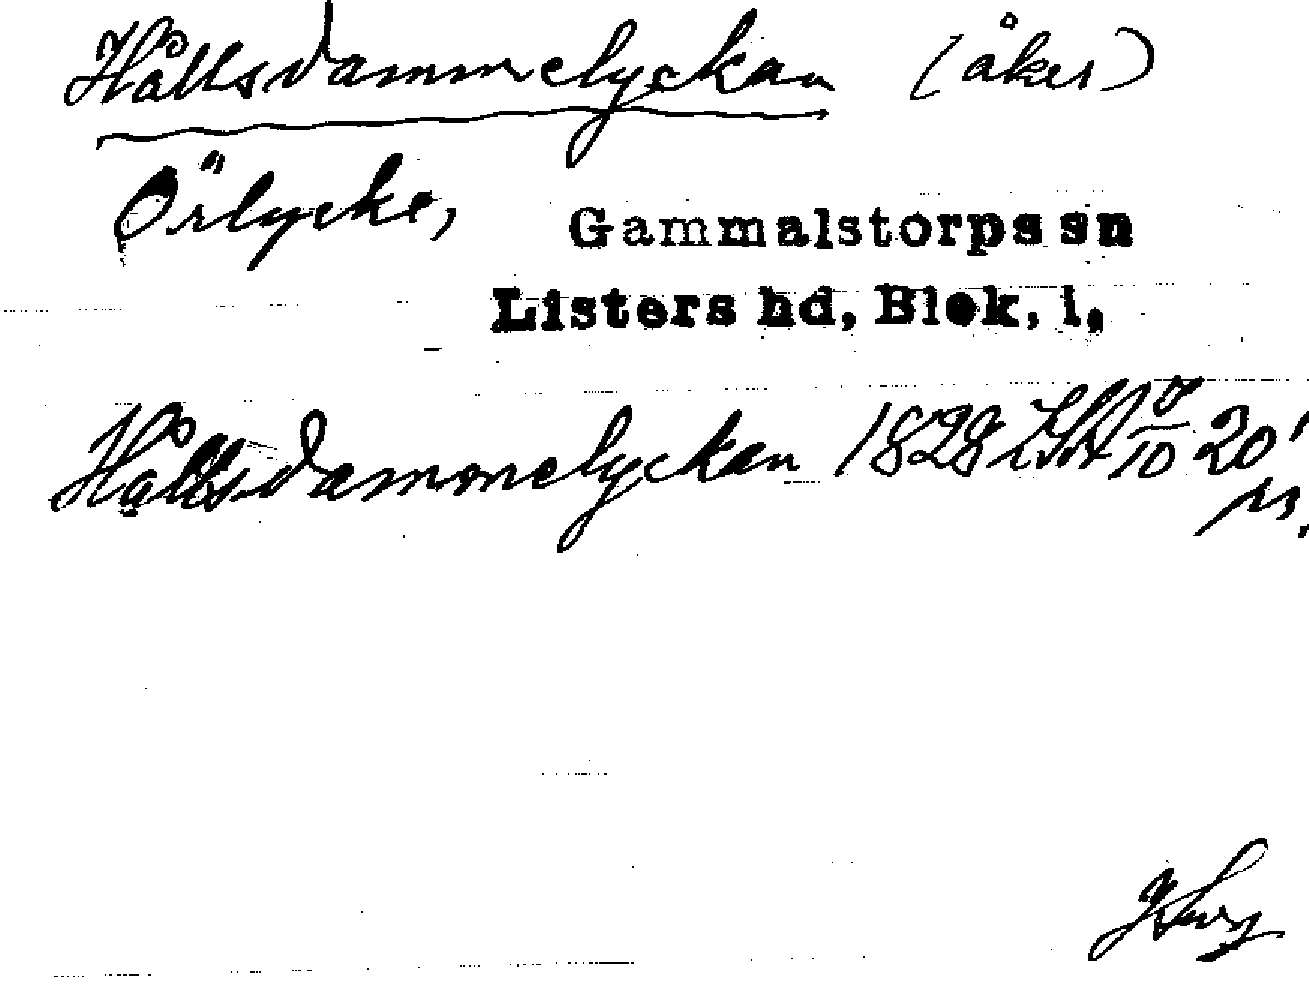 Hållsdammelyckan (åker)
Örlycke,
Gammalstorps sn
Listers hd, Blek. l.
Hållsdammelyckan 1828 20'